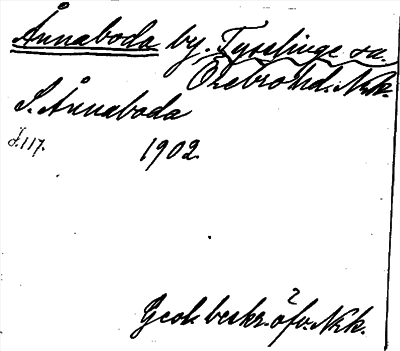 Ånnaboda by. Tysslinge sn.
Örebro hd. Nrk.
S. Ånnaboda
J. 117. 1902.
Geol. beskr. öfv. Nrk.